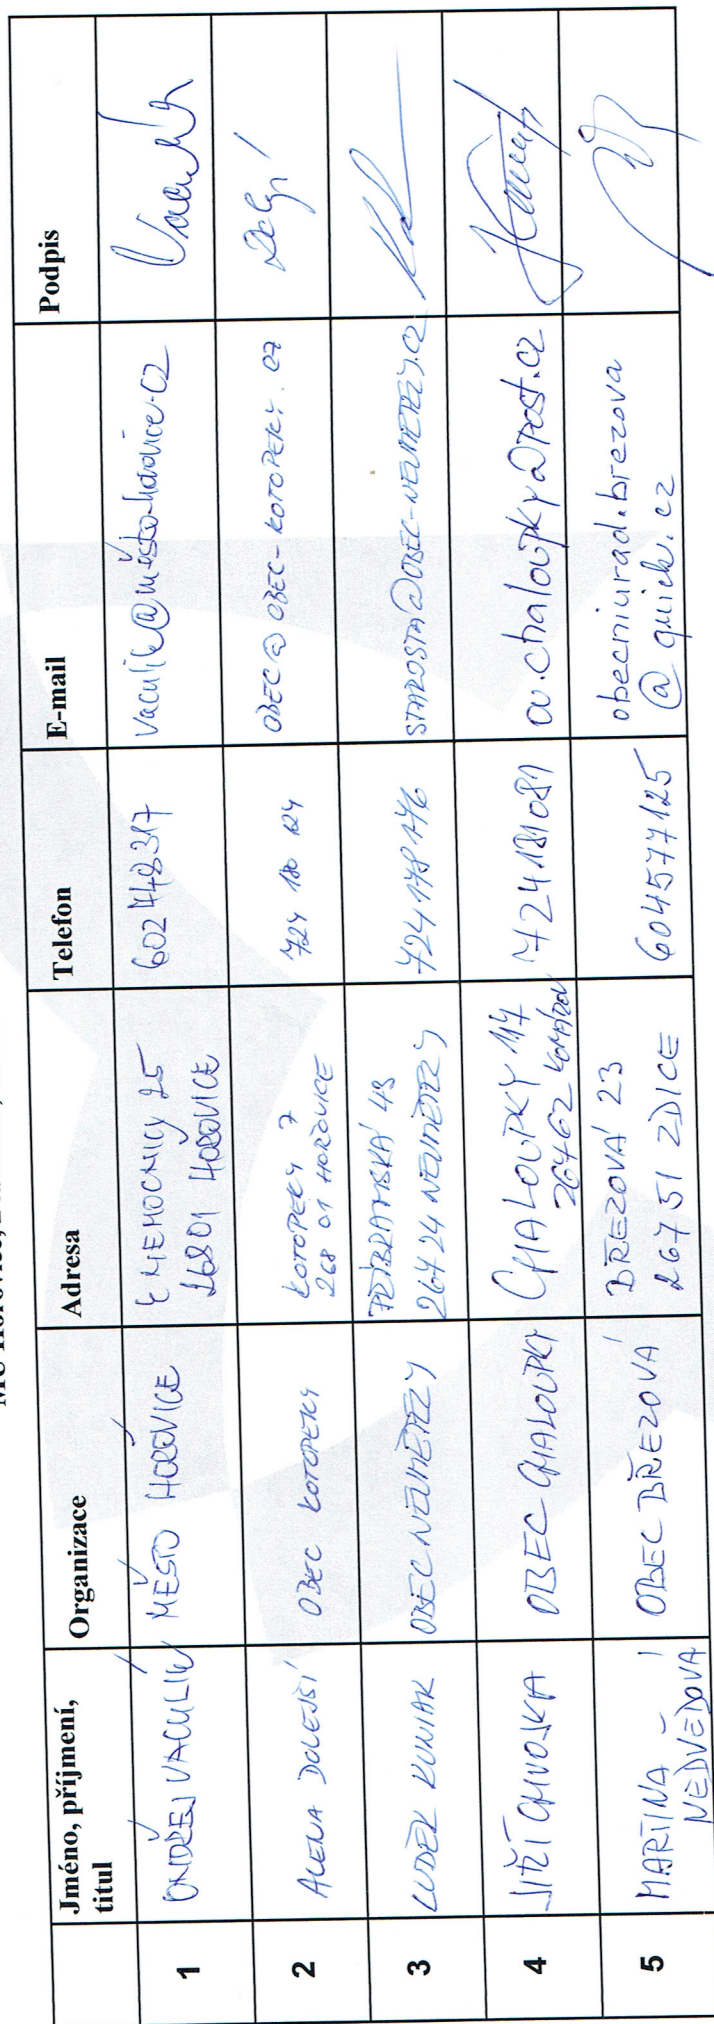 Jméno, příjmení,
titul
Organizace
Adresa
Telefon
E-mail
Podpis
1
ONDŘEJ VACULÍK
MĚSTO HOŘOVICE
K NEMOCNICI 25
26801 HOŘOVICE
602448317
vaculik@mesto-horovice.cz
2
ALENA DOLEJŠÍ
OBEC KOTOPEKY
KOTOPEKY 7
268 01 HOŘOVICE
724 180 124
OBEC@OBEC-KOTOPEKY.CZ
3
LUDĚK KUNIAK
OBEC NEUMĚTELY
PŘÍBRAMSKÁ 43
267 24 NEUMĚTELY
724 178 176
STAROSTA@OBEC-NEUMETELY.CZ
4
JIŘÍ CHVOJKA
OBEC CHALOUPKY
CHALOUPKY 117
26762 KOMÁROV
724181081
ou.chaloupky@post.cz
5
MARTINA
NEDVĚDOVÁ
OBEC BŘEZOVÁ
BŘEZOVÁ 23
267 51 ZDICE
604577125
obecniurad.brezova
@quick.cz